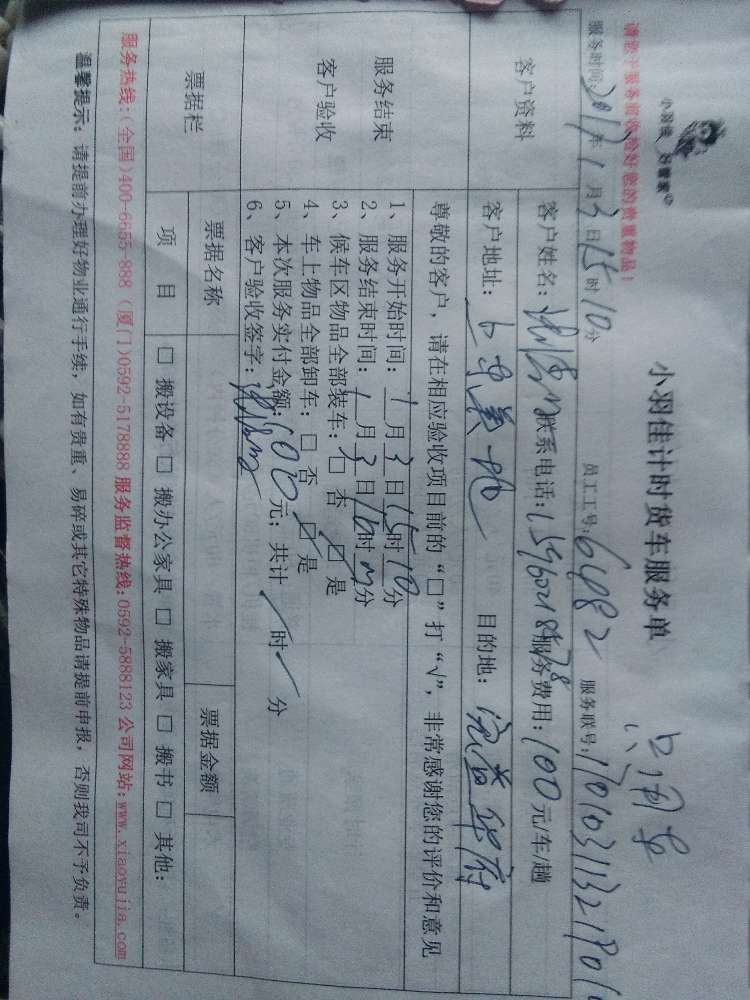 小羽佳 好管家
小羽佳计时货车服务单
只用车
请您于服务前收捡好您的贵重物品！
服务时间：2017年1月3日15时10分 员工工号：6482 服务联号：
客户资料
客户姓名： 联系电话： 服务费用：100元/车/趟
客户地址： 目的地：
服务结束
客户验收
尊敬的客户，请在相应验收项目前的“□”打“√”，非常感谢您的评价和意见
1、服务开始时间：1月3日15时10分
2、服务结束时间：1月3日16时 分
3、候车区物品全部装车：□ 否 □ 是
4、车上物品全部卸车：□ 否 □ 是
5、本次服务实付金额： 元；共计 时 分
6、客户验收签字：
票据栏
票据名称 票据金额
项 目 □ 搬设备 □ 搬办公家具 □ 搬家具 □ 搬书 □ 其他：
服务热线：(全国)400-6655-888 (厦门)0592-5178888 服务监督热线：0592-5888123 公司网站：www.xiaoyujia.com
温馨提示：请提前办理好物业通行手续，如有贵重、易碎或其它特殊物品请提前申报，否则我司不予负责。